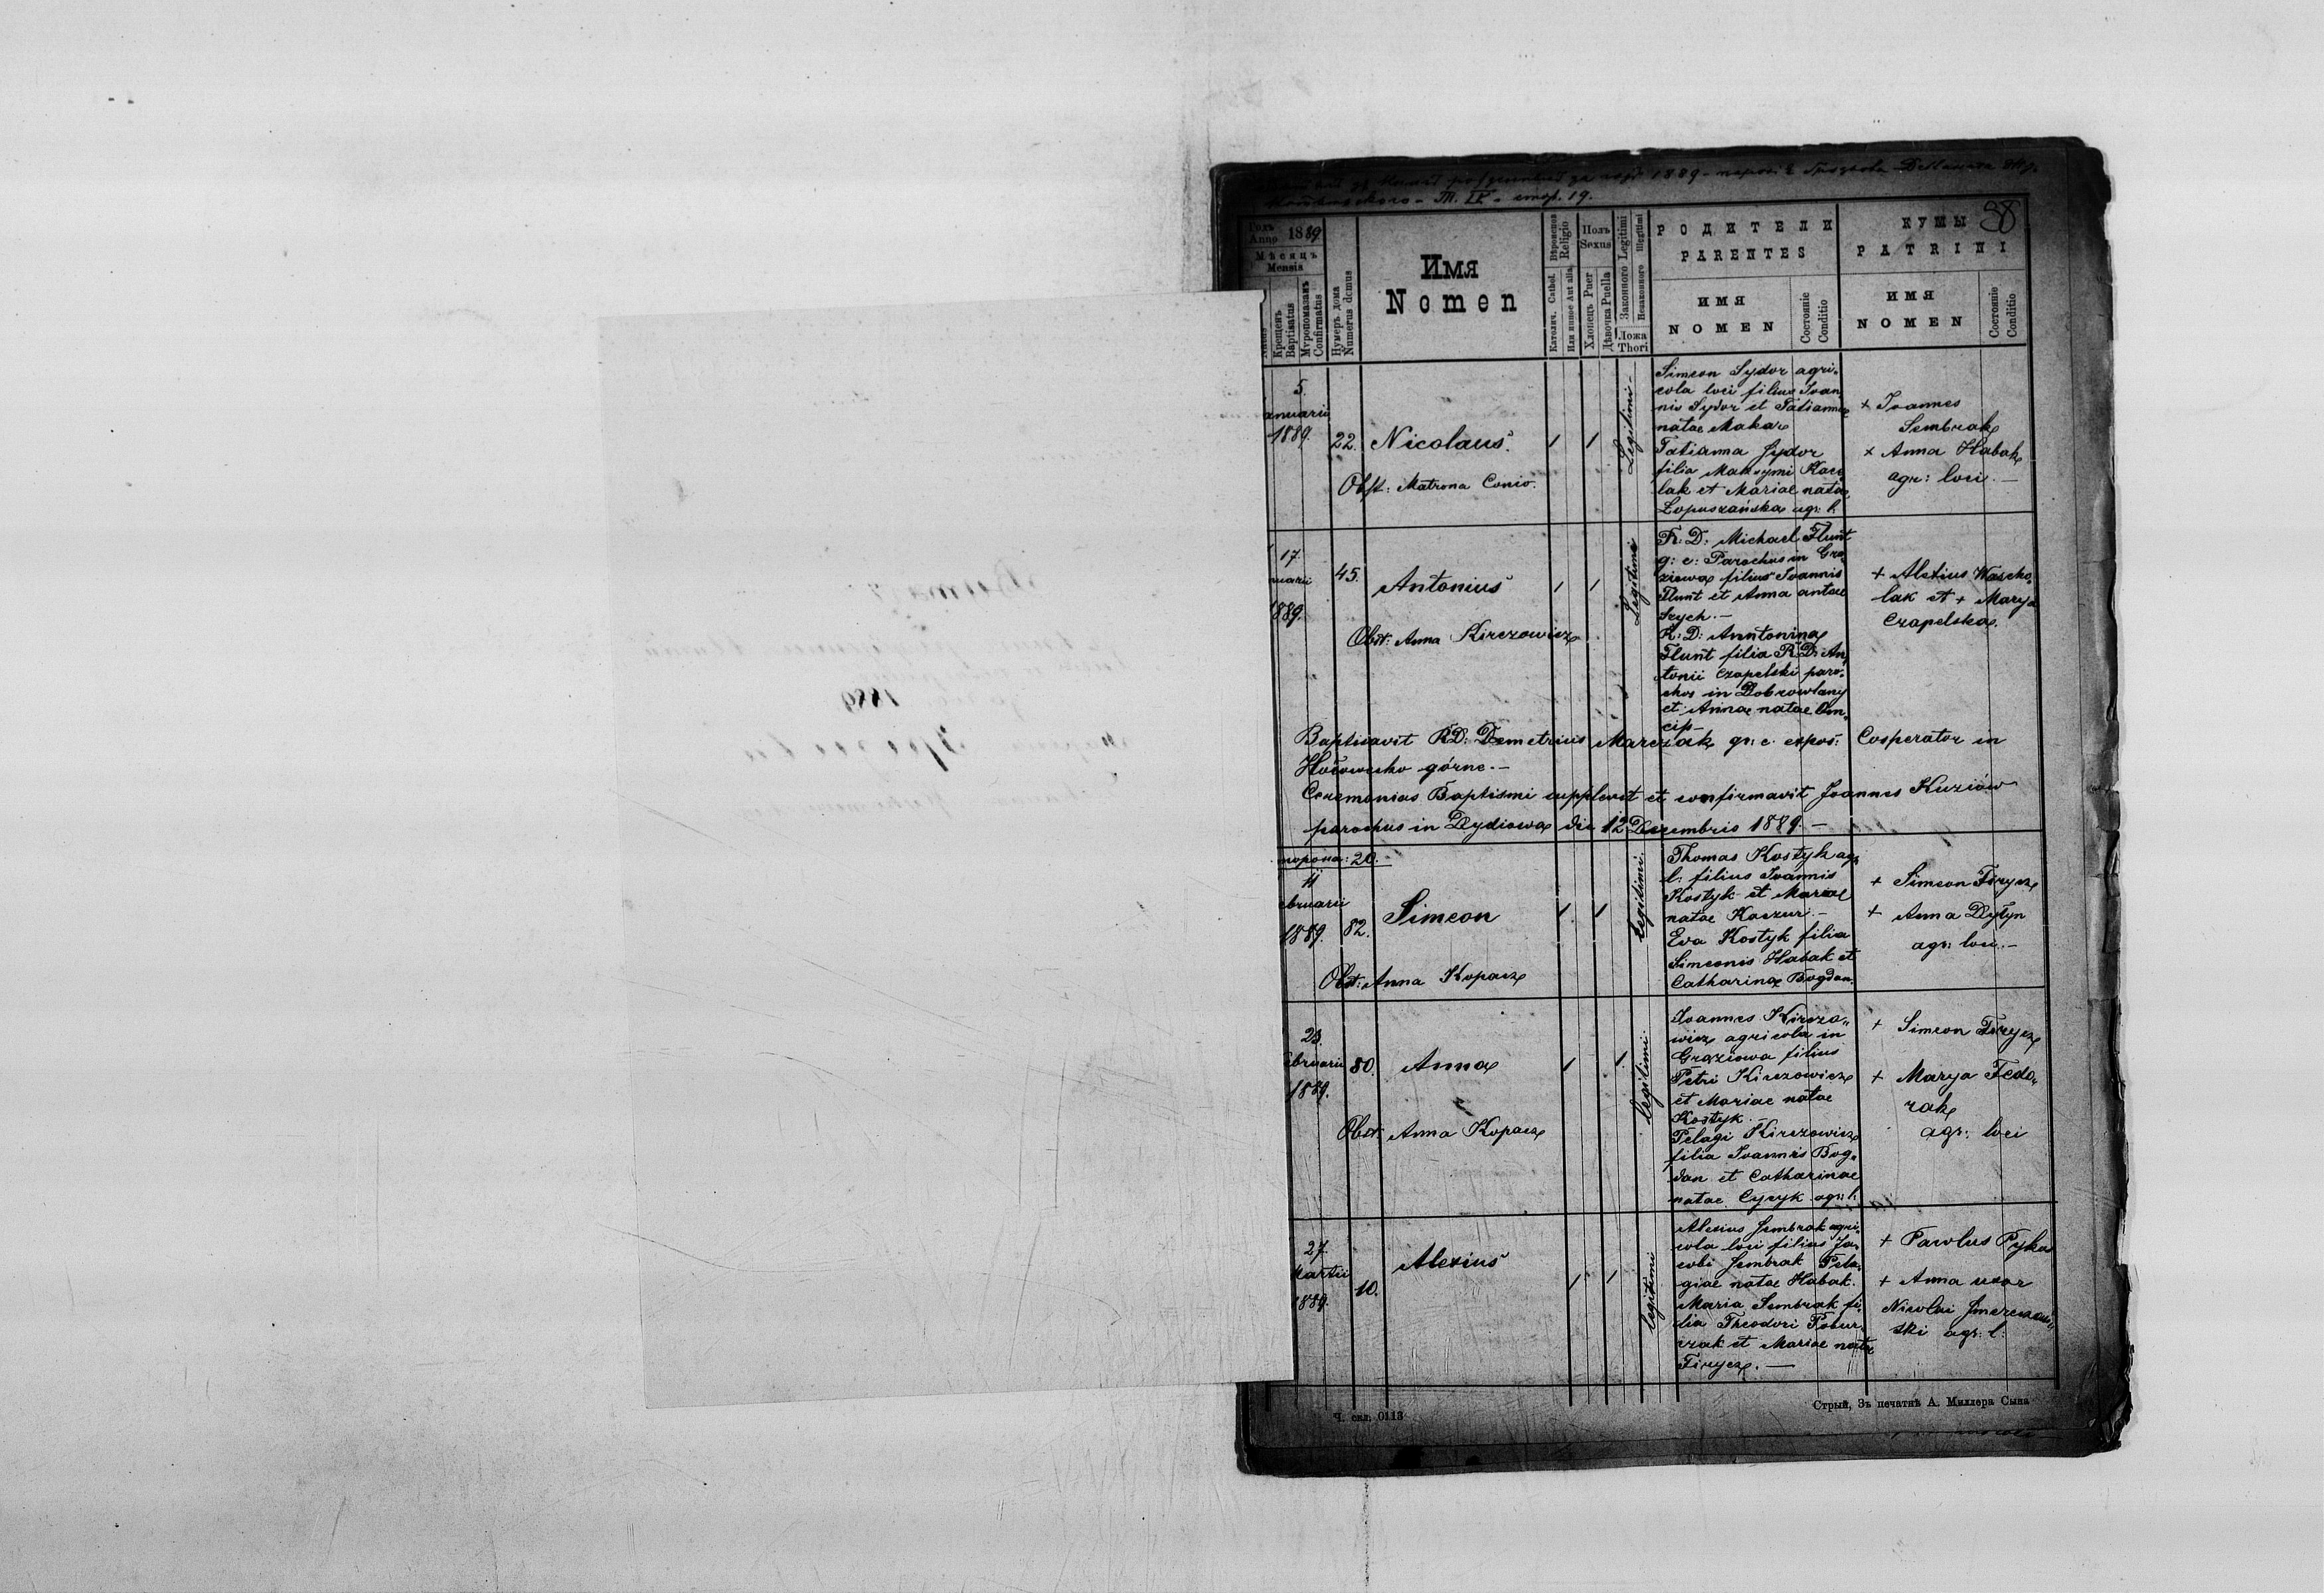 1889
Т. IV. стор. 19.
38
Годъ
Anno 1889
Мѣсяцъ
Mensis
Крещенъ
Baptisatus
Мѵропомазанъ
Confirmatus
Нумеръ дома
Numerus domus
Имя
Nomen
Religio
Католич. Cathol.
Или инное Aut alia
Полъ
Sexus
Хлопецъ Puer
Дѣвочка Puella
Законного Legitimi
Незаконного Illegitimi
Ложа
Thori
РОДИТЕЛИ
PARENTES
ИМЯ
NOMEN
Состояніе
Conditio
КУМЫ
PATRINI
ИМЯ
NOMEN
Состояніе
Conditio
5.
anuarii
1889.
22.
Nicolaus
Obst: Matrona Conio.
Legitimi
Simeon Sydor agri-
cola loci filius Ioan
nis Sydor et Tatianna
natae Makar
Tatianna Sydor
filia Maksymi Kacz
lak et Mariae natae
Łopuszańska agr: l.
+ Ioannes
Sembrak
+ Anna Habak
agr: loci.
17.
nuarii
1889.
45.
Antonius
Obst: Anna Kirczowicz
Legitimi
R: D: Michael Flunt
g: c: Parochus in Gro
ziowa filius Ioannis
Flunt et Anna antae
Szych.
R: D: Anntonina
Flunt filia R: D: An
tonii Czapelski paro-
chos in Dobrowlany
et Annae natae Om-
cip
+ Alexius Wascho
lak et + Marya
Czapelska.
Baptisavit R.D: Demetrius Marczak gr: c. expos: Cooperator in
Hołowecko górne.
Ceremonias Baptismi supplevit et confirmavit Joannes Kuziów
parochus in Dydiowa die 12 Decembris 1889.
торона: 20.
11
ebruarii
1889.
82.
Simeon
Obst: Anna Kopacz
legitimi.
Thomas Kostyk agr
l: filius Ioannis
Kostyk et Mariae
natae Kaczur.
Eva Kostyk filia
Simeonis Habak et
Catharina Bogdan.
+ Simeon Firycz
+ Anna Dytyn
agr: loci.
23.
ebruarii
1889.
80.
Anna
Obst: Anna Kopacz
legitimi.
Ioannes Kirczo
wicz agricola in
Groziowa filius
Petri Kirczowicz
et Mariae natae
Kostyk
Pelagi Kirczowicz
filia Ioannis Bog
dan et Catharinae
natae Cyzyk agr: l:
+ Simeon Firycz
+ Marya Fedo
rak
agr: loci
27.
Martii
1889.
10.
Alexius
legitimi
Alexius Sembrak agri-
cola loci filius Ja-
cobi Sembrak Pela-
giae natae Habak.
Maria Sembrak fi-
lia Theodori Pobur
czak et Mariae natae
Firycz.
+ Pawlus Pyka
+ Anna uxor
Nicolai
ski agr: l:
Стрый, Зъ печатнѣ А. Миллера Сына